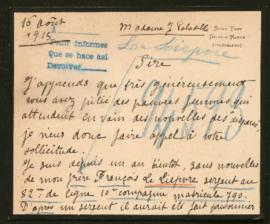 16 Août
1915
Madame J.
Pedir informes
Que se hace así
Devolver
Le Liepore
Sire
J'apprends que très généreusement
vous avez pitié des pauvres femmes qui
attendent en vain des nouvelles des
je viens donc faire appel à votre
sollicitude.
Je suis depuis un an bientôt, sans nouvelles
de mon frère François Le Liepore sergent au
82me de ligne 10e compagnie matricule 790.
D'après un sergent il aurait été fait prisonnier